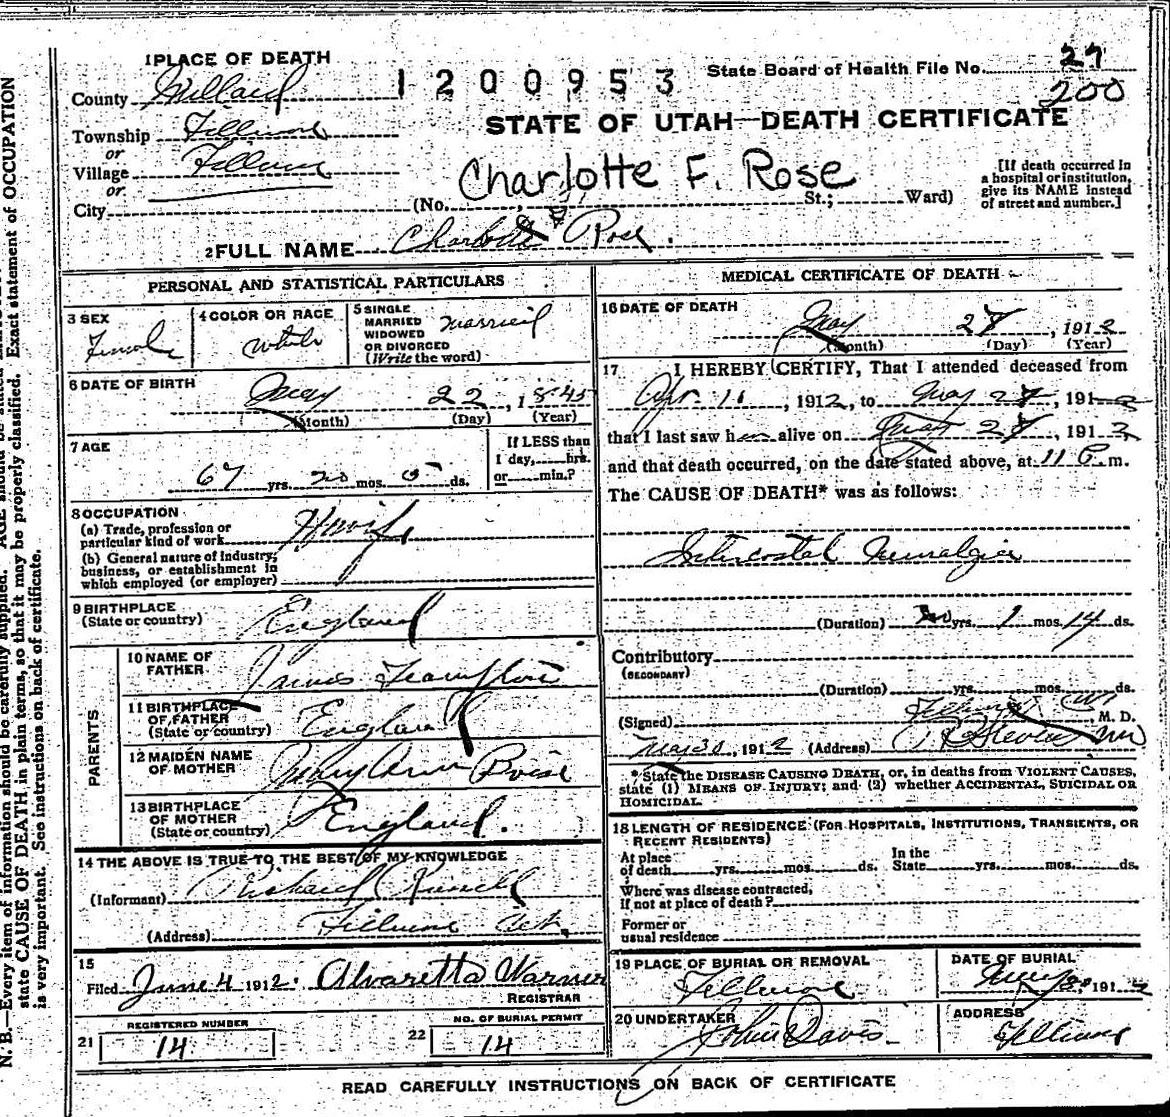 1 PLACE OF DEATH
1200953
State Board of Health File No. 27
200
County Millard
Township Fillmore
or
Village Fillmore
or
City
STATE OF UTAH—DEATH CERTIFICATE
Charlotte F. Rose
(No. St.; Ward)
[If death occurred in
a hospital or institution,
give its NAME instead
of street and number.]
2 FULL NAME Charlotte Rose
PERSONAL AND STATISTICAL PARTICULARS
3 SEX
Female
4 COLOR OR RACE
white
5 SINGLE
MARRIED
WIDOWED
OR DIVORCED
(Write the word)
married
6 DATE OF BIRTH
May 22, 1845
(Month) (Day) (Year)
7 AGE
67 yrs. no mos. 5 ds.
If LESS than
1 day, hrs.
or min.?
8 OCCUPATION
(a) Trade, profession or
particular kind of work
(b) General nature of industry,
business, or establishment in
which employed (or employer)
9 BIRTHPLACE
(State or country)
England
PARENTS
10 NAME OF
FATHER
James Frampton
11 BIRTHPLACE
OF FATHER
(State or country)
England
12 MAIDEN NAME
OF MOTHER
Mary Ann
13 BIRTHPLACE
OF MOTHER
(State or country)
England.
14 THE ABOVE IS TRUE TO THE BEST OF MY KNOWLEDGE
(Informant) Richard Russell
(Address) Fillmore Utah
15
Filed June 4 1912. Alvaretta Warner
REGISTRAR
REGISTERED NUMBER
21 14
NO. OF BURIAL PERMIT
22 14
MEDICAL CERTIFICATE OF DEATH
16 DATE OF DEATH
May 28, 1912
(Month) (Day) (Year)
17 I HEREBY CERTIFY, That I attended deceased from
Apr. 11, 1912, to May 28, 1912
that I last saw her alive on May 28, 1912
and that death occurred, on the date stated above, at 11 P. m.
The CAUSE OF DEATH* was as follows:
Intercostal Neuralgia
(Duration) yrs. 1 mos. 14 ds.
Contributory
(SECONDARY)
(Duration) yrs. mos. ds.
(Signed) , M. D.
May 30, 1912 (Address)
* State the DISEASE CAUSING DEATH, or, in deaths from VIOLENT CAUSES,
state (1) MEANS OF INJURY; and (2) whether ACCIDENTAL, SUICIDAL OR
HOMICIDAL.
18 LENGTH OF RESIDENCE (FOR HOSPITALS, INSTITUTIONS, TRANSIENTS, OR
RECENT RESIDENTS)
At place
of death yrs. mos. ds.
In the
State yrs. mos. ds.
Where was disease contracted,
if not at place of death?
Former or
usual residence
19 PLACE OF BURIAL OR REMOVAL
Fillmore
DATE OF BURIAL
May 30, 1912
20 UNDERTAKER
John Davis
ADDRESS
Fillmore
READ CAREFULLY INSTRUCTIONS ON BACK OF CERTIFICATE
N. B.—Every item of information should be carefully supplied. AGE should be stated
state CAUSE OF DEATH in plain terms, so that it may be properly classified. Exact statement of OCCUPATION
is very important. See instructions on back of certificate.